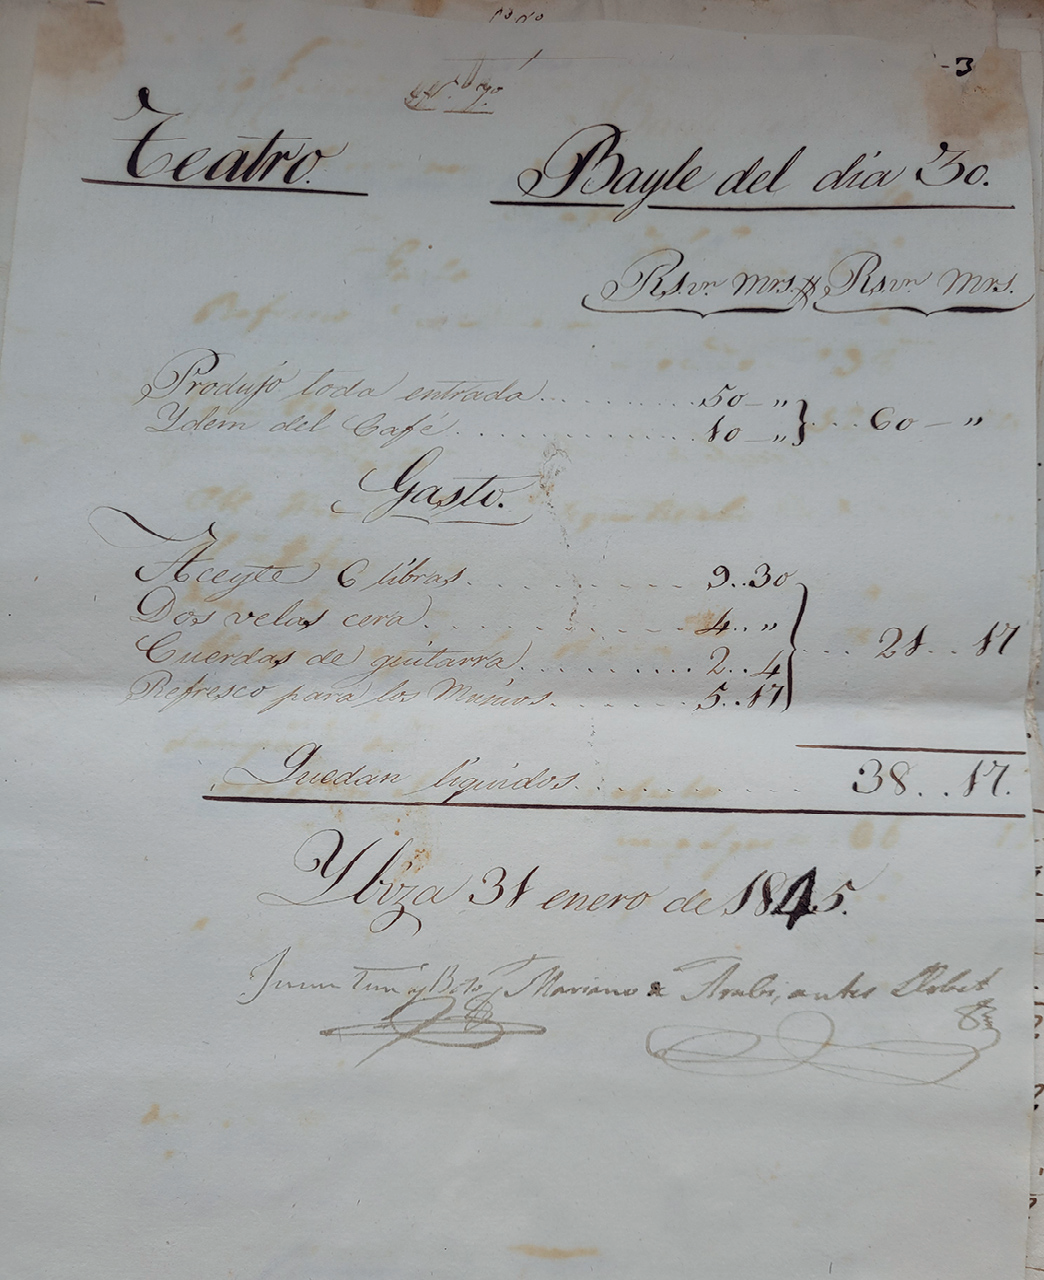 - 3
Teatro. Bayle del día 30.
Rs. vn. Mrs. Rs vn Mrs.
Produjo toda entrada.......... 50 — „
Ydem del Café............... 10 — „ } ... 60 — „
Gasto.
Aceyte 6 libras.......... 9..30
Dos velas cera.......... 4.. „
Cuerdas de guitarra.......... 2..4
Refresco para los Musicos....... 5..17 } ... 21..17
Quedan liquidos.......... 38..17.
Ybiza 31 enero de 1845.
Juan y Mariano Arabi, antes Llobet